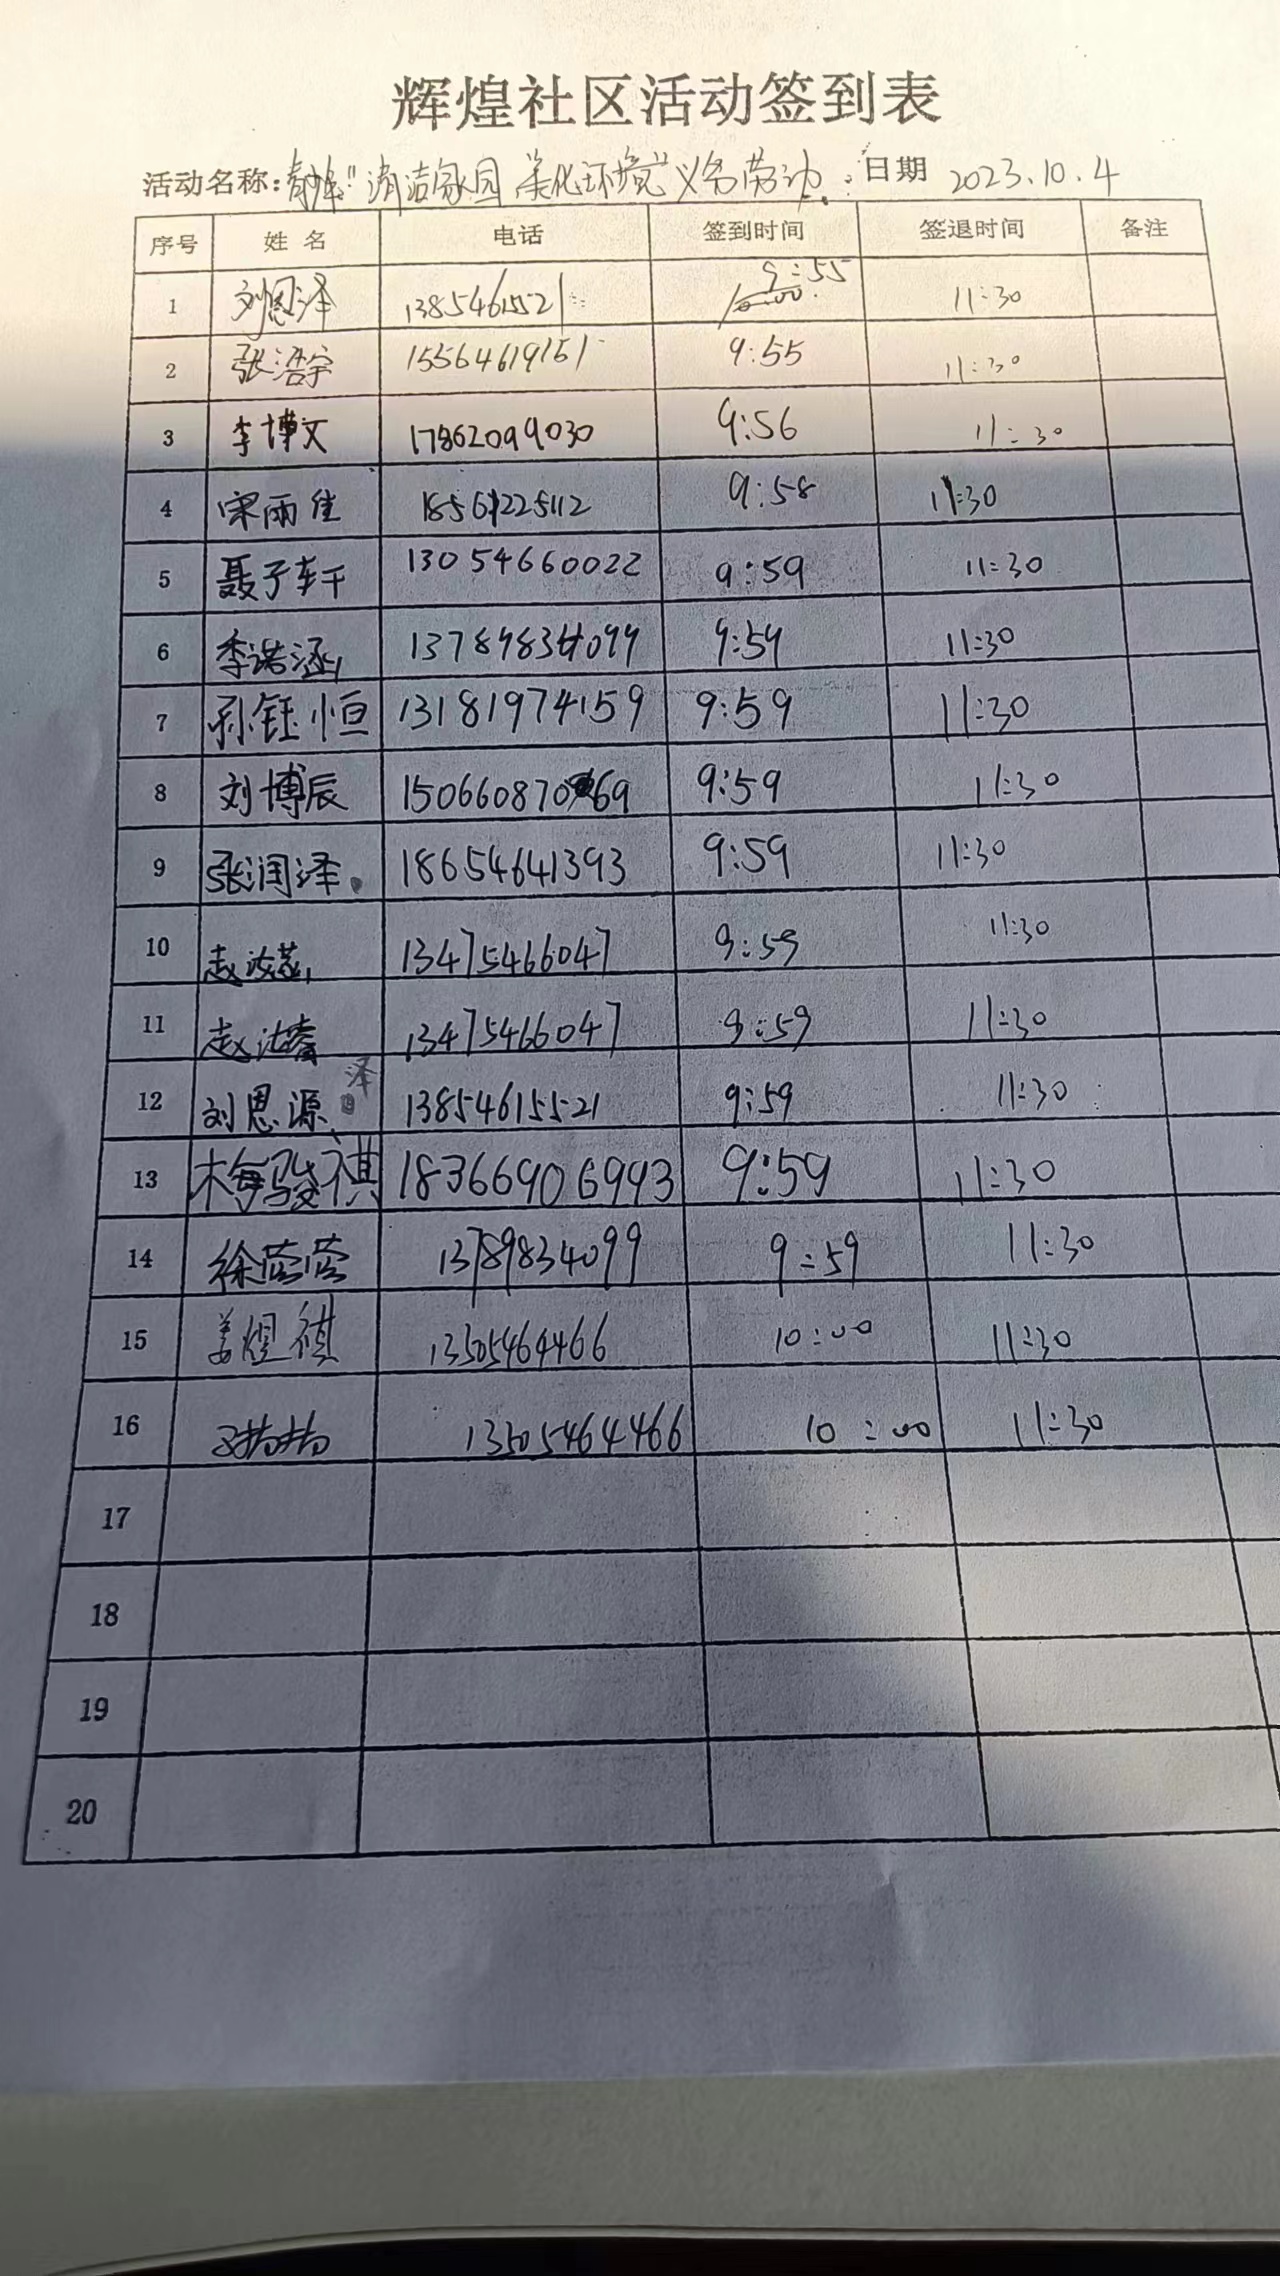 辉煌社区活动签到表
活动名称: "清洁家园 美化环境"义务劳动. 日期 2023.10.4
序号 姓名 电话 签到时间 签退时间 备注
1 刘恩泽 13854615521 9:55 11:30
2 张浩宇 15564619151 9:55 11:30
3 李博文 17862099030 9:56 11:30
4 宋雨佳 18561225112 9:58 11:30
5 聂子轩 13054660022 9:59 11:30
6 季诺涵 13789834099 9:59 11:30
7 孙钰恒 13181974159 9:59 11:30
8 刘博辰 15066087069 9:59 11:30
9 张润泽 18654641393 9:59 11:30
10 赵 13475466047 9:59 11:30
11 赵 13475466047 9:59 11:30
12 刘恩源 13854615521 9:59 11:30
13 梅骏祺 18366906943 9:59 11:30
14 徐蓉蓉 13789834099 9:59 11:30
15 姜煜祺 13505464466 10:00 11:30
16 13505464466 10:00 11:30
17
18
19
20